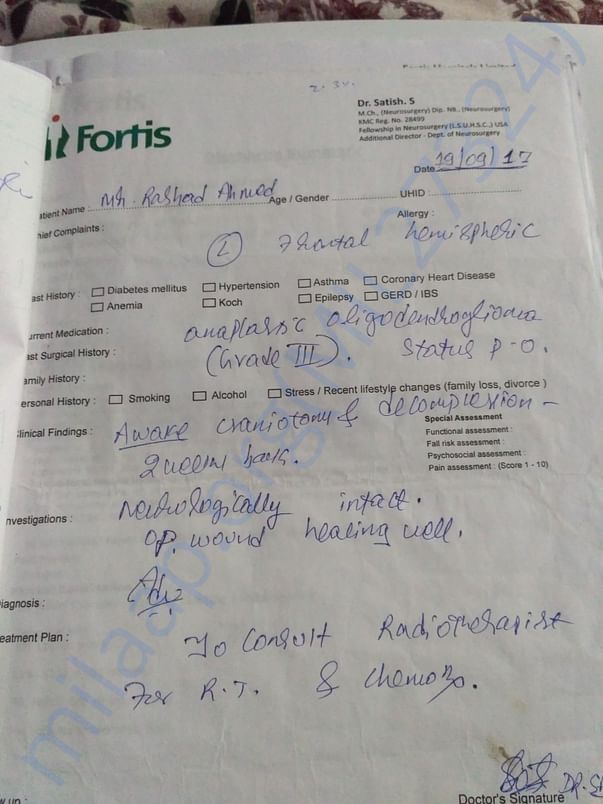 2.30.
Dr. Satish. S
M.Ch, (Neurosurgery) Dip. NB., (Neurosurgery)
KMC Reg. No. 28499
Fellowship in Neurosurgery (L.S.U.H.S.C.) USA
Additional Director - Dept. of Neurosurgery
Fortis
Date 19/09/17
atient Name : Mr. Rashad Ahmed Age / Gender UHID
hief Complaints : Allergy :
(L) Frontal hemispheric
ast History : Diabetes mellitus Hypertension Asthma Coronary Heart Disease
Anemia Koch Epilepsy GERD / IBS
urrent Medication : anaplastic oligodendroglioma
ast Surgical History : (Grade III). Status P-O.
amily History :
ersonal History : Smoking Alcohol Stress / Recent lifestyle changes (family loss, divorce )
linical Findings : Awake craniotomy & decompression -
2 weeks back.
Special Assessment
Functional assessment :
Fall risk assessment :
Psychosocial assessment :
Pain assessment : (Score 1 - 10)
nvestigations : Neurologically intact.
op. wound healing well.
iagnosis : Adv
eatment Plan : To consult Radiotherapist
For R.T. & chemo
w up :
Doctor's Signature
milaap.org